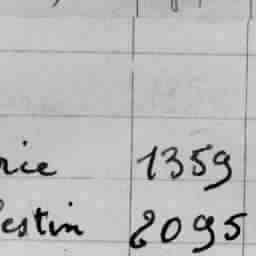 rie 1359
estin 2095